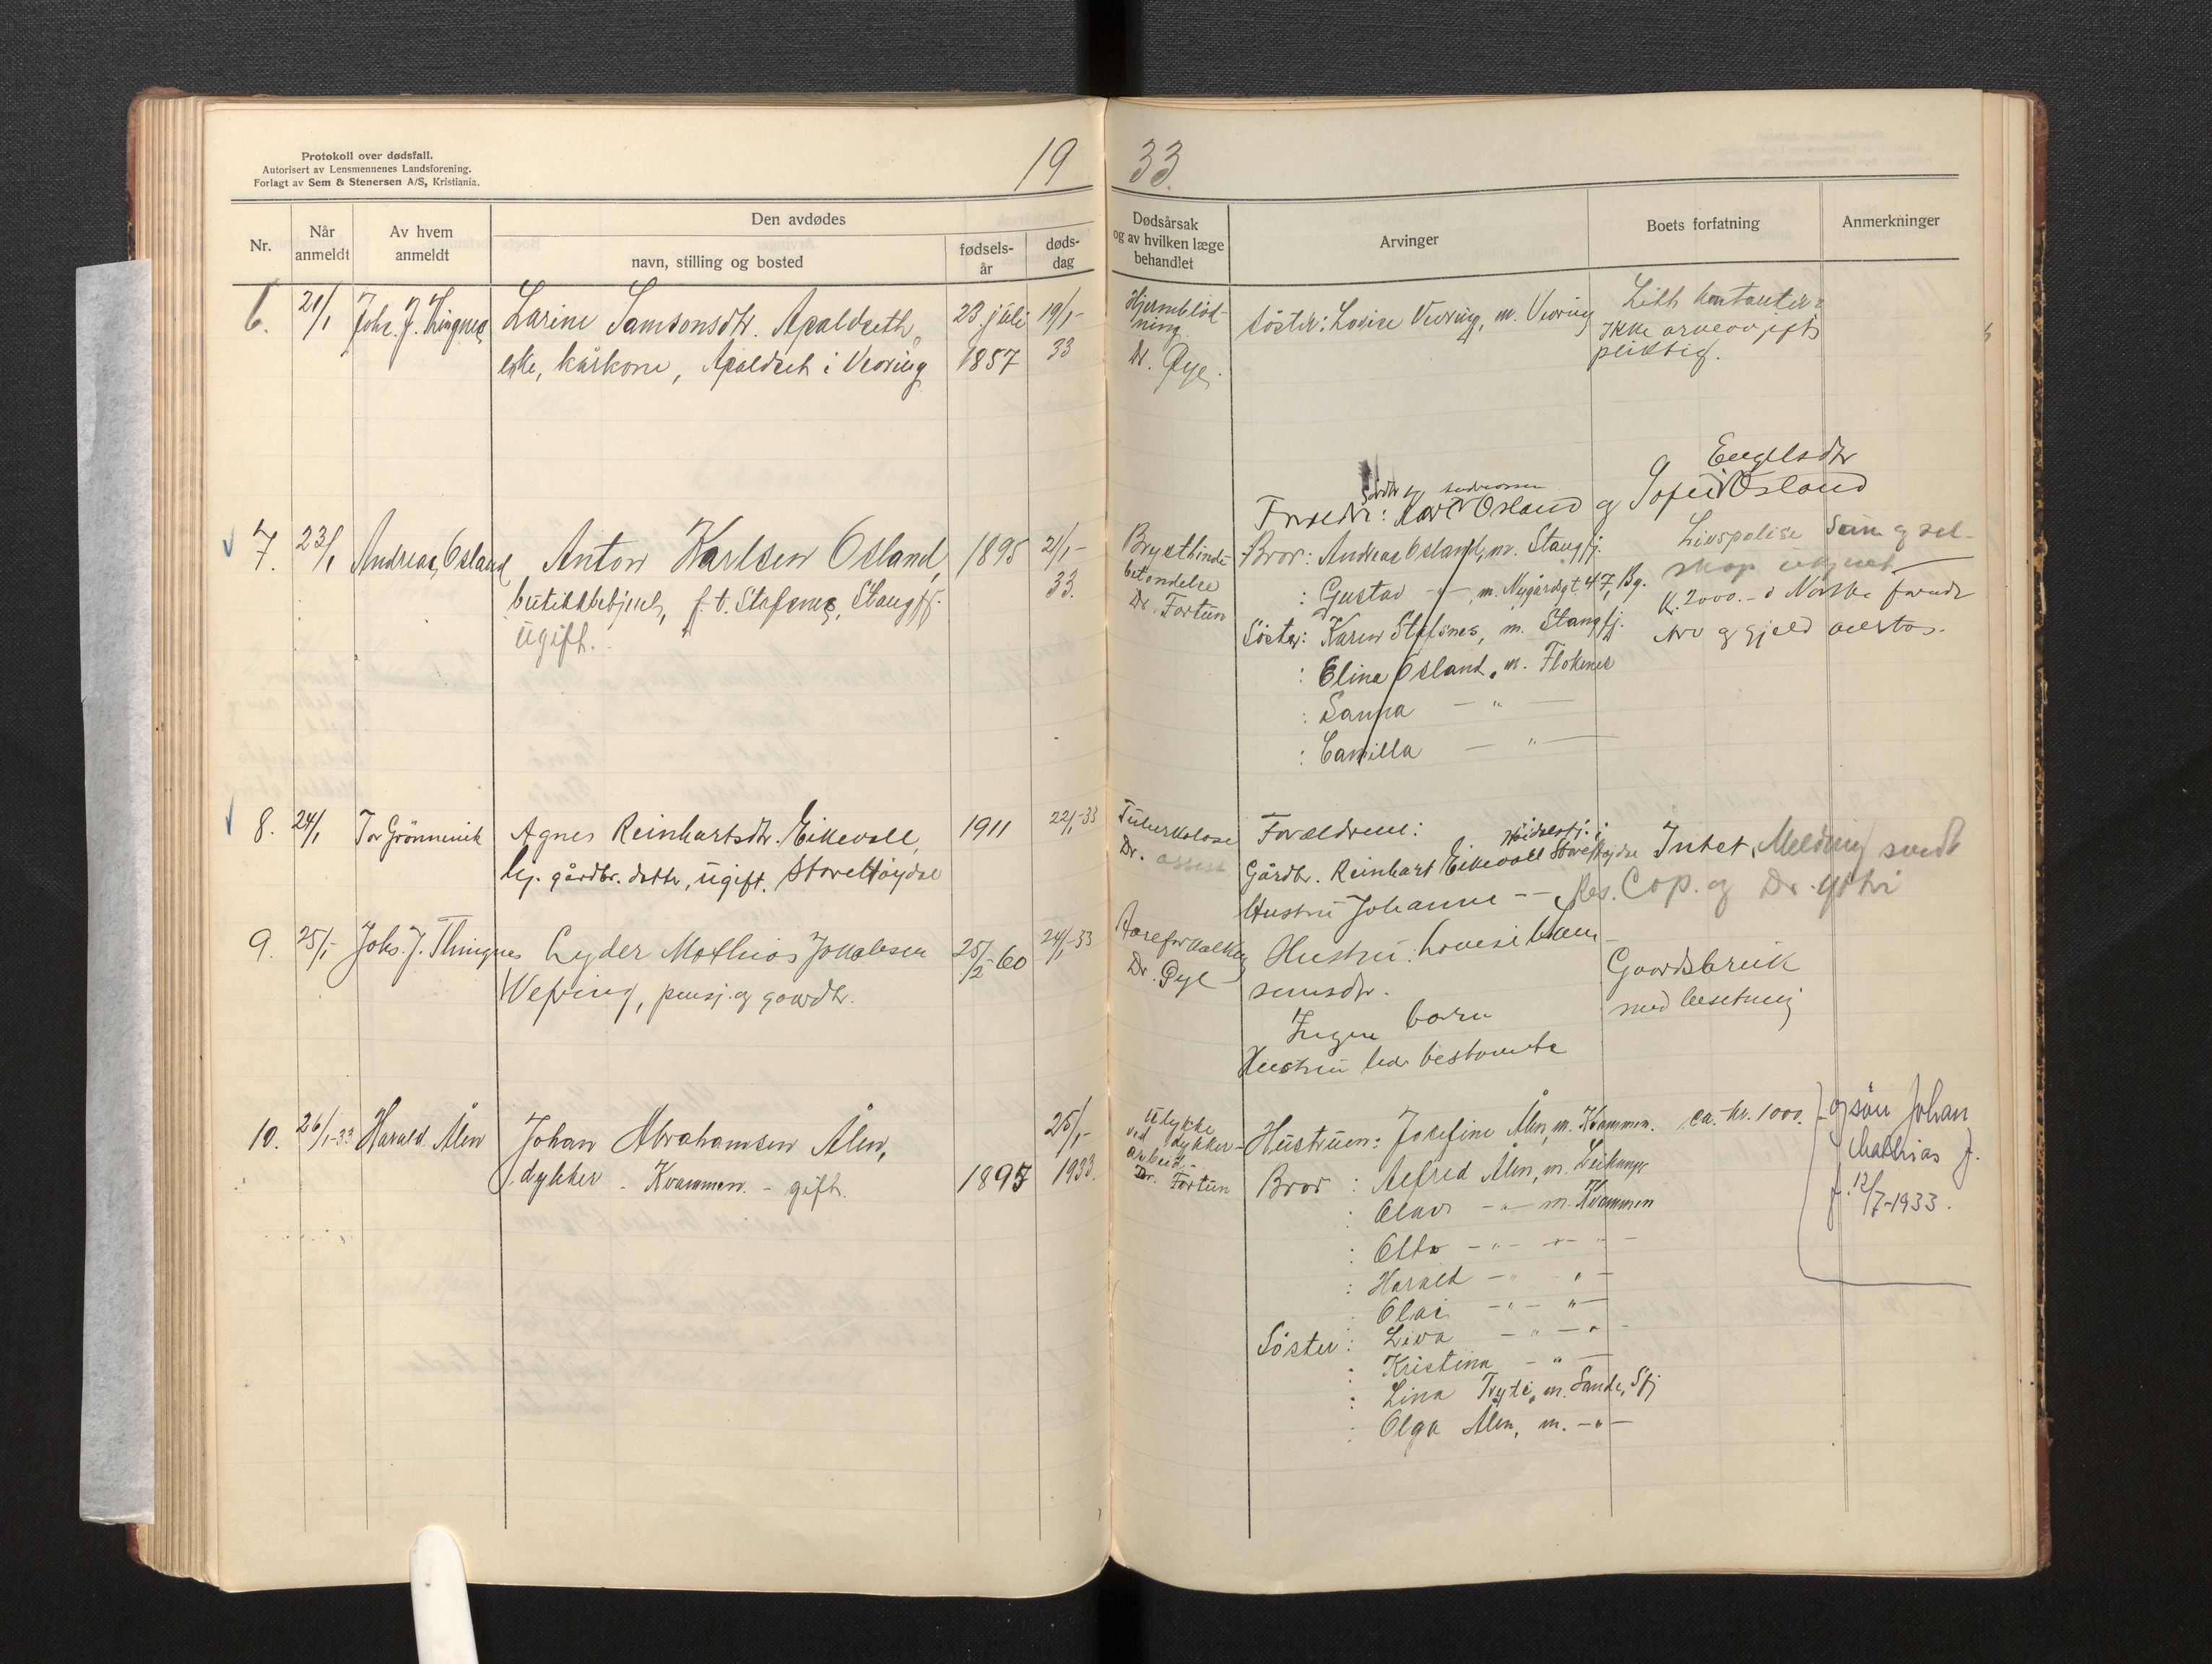 Protokoll over dødsfall.
Autorisert av Lensmennenes Landsforening.
Forlagt av Sem & Stenersen A/S, Kristiania.
19 33
Nr.
Når anmeldt
Av hvem anmeldt
Den avdødes
navn, stilling og bosted
fødsels-
år
døds-
dag
Dødsårsak
og av hvilken læge
behandlet
Arvinger
Boets forfatning
Anmerkninger
6. 21/1 Johs. J. Thingnes Larine Samsonsdtr. Apaldseth, 23 juli 19/1-
enke, kårkone, Apaldset i Vevring 1857 33
Hjerneblød-
ning
Dr. Øye.
Søster: Lovise Vevring, m. Vevring
Litt kontanter.
Ikke arveavgifts
pliktig.
7. 23/1 Andreas Osland Anton Karlsen Osland, 1895 21/1-
butikkbetjent, f. t. Stafsnes, Stangfj. 33.
ugift.
Brysthinde-
betendelse
Dr. Fortun
Engelsdtr
Karl Osland og Sofie Osland
Bror: Andreas Osland, m. Stangfj.
: Gustav -"- m. Nygårdsgt. 47, Bg.
Søster: Karen Stafsnes, m. Stangfj.
: Elina Osland, m. Flokenes
: Sanna — " —
: Camilla — " —
Livspolise
K. 2000.- i Norske
Arv og gjeld overtas.
8. 24/1 Tor Grønnevik Agnes Reinhartsdtr. Eikevoll, 1911 22/1-33
gårdbr. datter, ugift. Storehøydal
Tuberkulose
Dr.
Forældrene:
Gårdbr. Reinhart Eikevoll
Hustru Johanne -"-
Intet. Melding sendt
Res. Cap. og Dr.
9. 25/1- Johs. J. Thingnes Lyder Mathias Jakobsen 25/2-60 24/1-33
Wefring, pensj. og gaardbr.
Aareforkalkn
Dr. Øye
Hustru. Lovise
sensdtr.
Ingen barn
Hustru
Gaardsbruk
med besetning
10. 26/1-33 Harald Ålen Johan Abrahamsen Ålen, 25/1-
dykker - Kvammen. - gift. 1895 1933.
Ulykke
ved dykker-
arbeid.
Dr. Fortun
Hustruen: Josefine Ålen, m. Kvammen. ca. kr. 1000.
Bror : Alfred Ålen, m. Leikanger
: Olav -"- m. Kvammen
: Otto -"- -"-
: Harald -"- "-
: Olai -"- "-
Søster : Liva -"- "-
: Kristina -"-
: Lina Tryti, m. Sande, Sfj
: Olga Ålen, m. -"-
og søn Johan
Mathias J.
f. 12/7-1933.